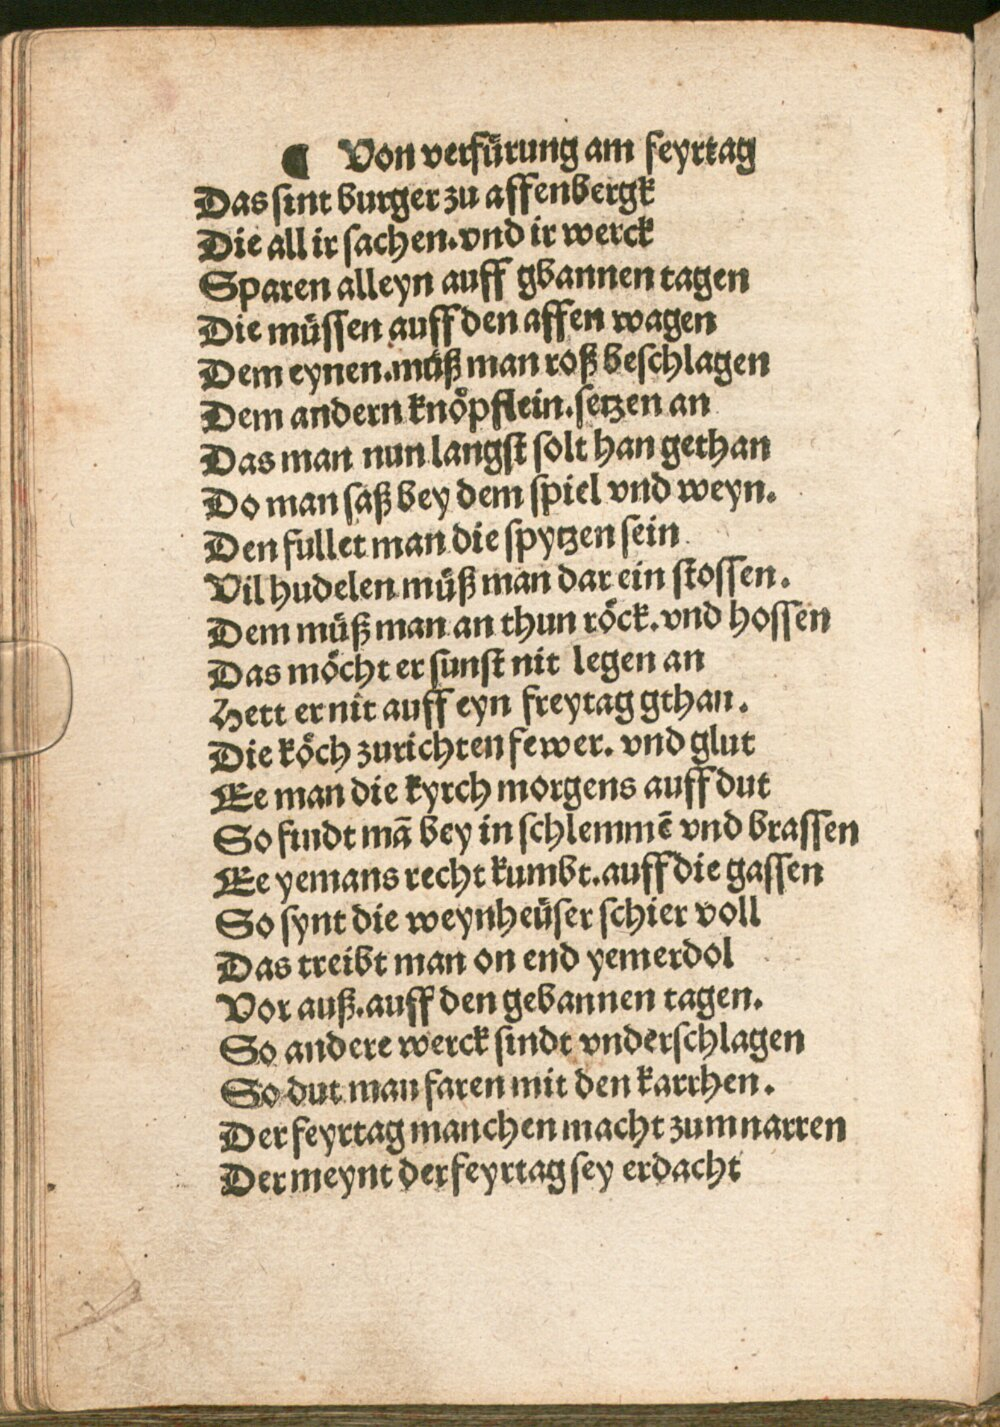 ¶ Von verfürung am feyrtag
Das sint burger zu affenbergk
Die all ir sachen. vnd ir werck
Sparen alleyn auff gbannen tagen
Die müssen auff den affen wagen
Dem eynen. müß man roß beschlagen
Dem andern knöpflein. setzen an
Das man nun langst solt han gethan
Do man saß bey dem spiel vnd weyn.
Den fullet man die spytzen sein
Vil hudelen müß man dar ein stossen.
Dem müß man an thun röck. vnd hossen
Das möcht er sunst nit legen an
Hett er nit auff eyn freytag gthan.
Die köch zurichten fewer. vnd glut
Ee man die kyrch morgens auff dut
So findt mã bey in schlemmẽ vnd brassen
Ee yemans recht kumbt. auff die gassen
So synt die weynheüser schier voll
Das treibt man on end yemerdol
Vor auß. auff den gebannen tagen.
So andere werck sindt vnderschlagen
So dut man faren mit den karrhen.
Der feyrtag manchen macht zum narren
Der meynt der feyrtag sey erdacht